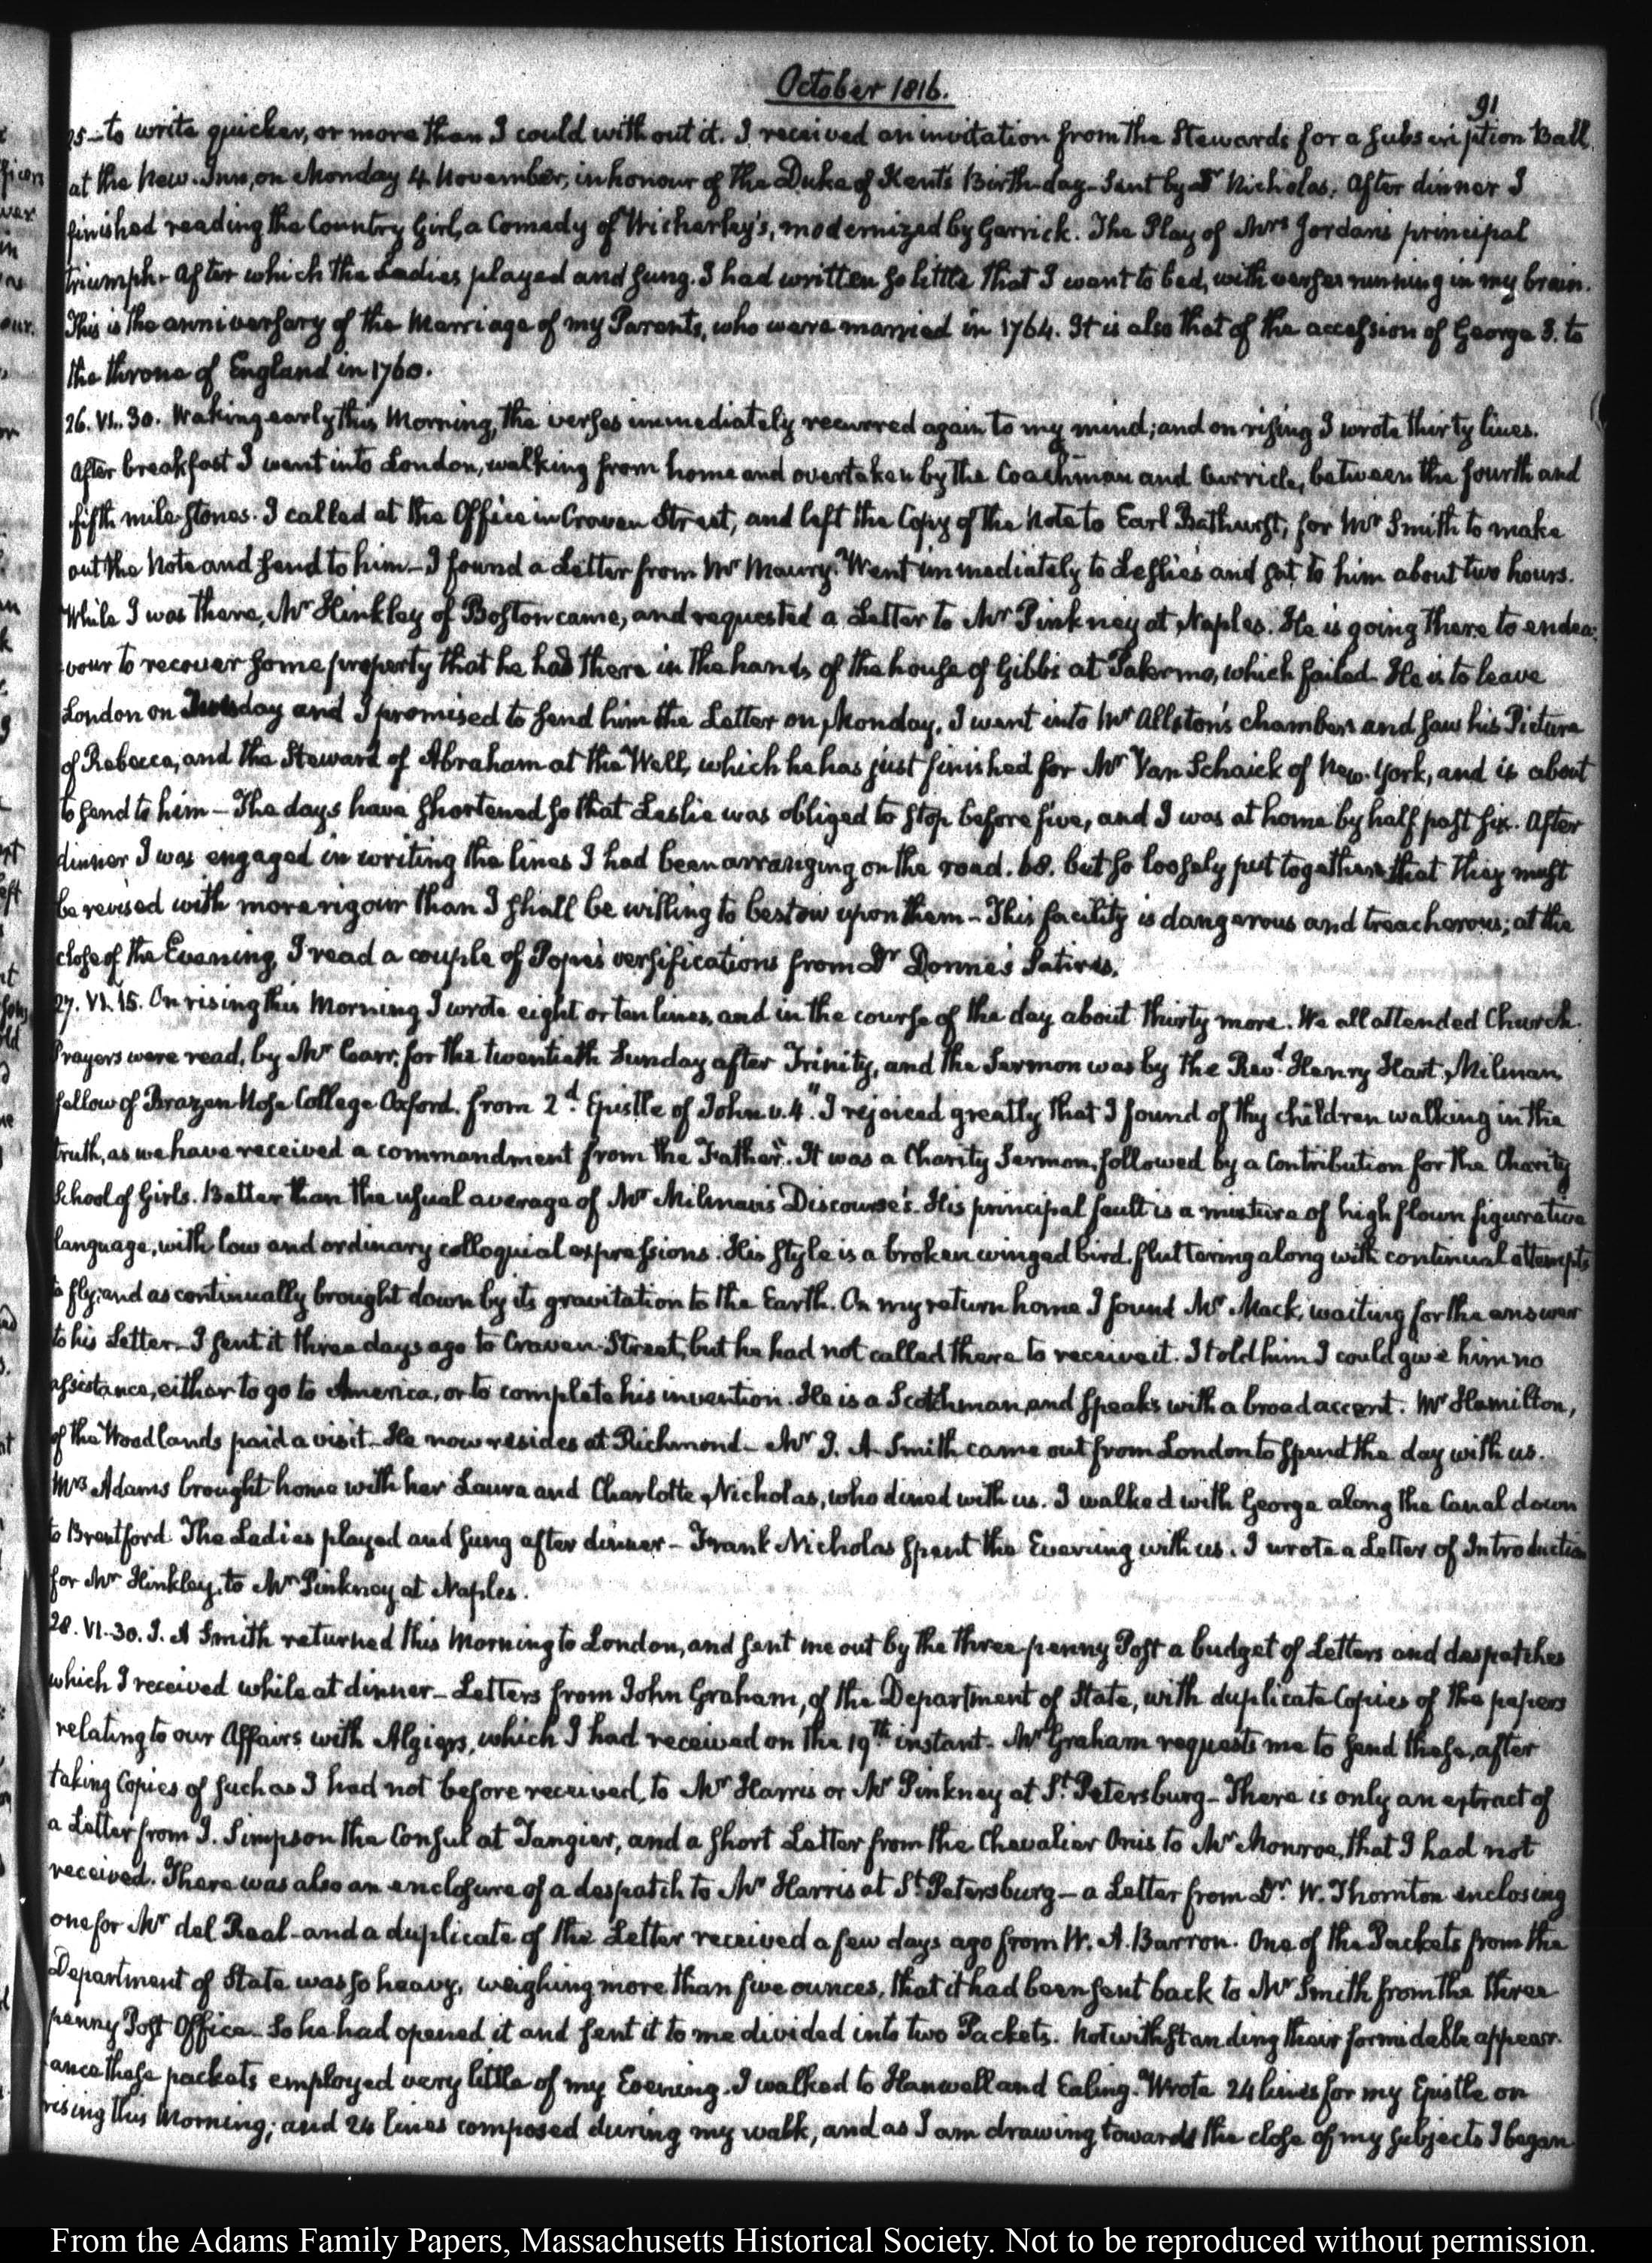 October 1816.
91
25 – to write quicker, or more than I could without it. I received an invitation from the Stewards for a subscription Ball,
at the New-Inn, on Monday 4 November, in honour of the Duke of Kent's Birth-day – sent by Dr Nicholas. After dinner I
finished reading the Country Girl, a Comedy of Wicherley's, modernized by Garrick. The Play of Mrs Jordan's principal
triumph – After which the Ladies played and sung. I had written so little that I went to bed, with verses running in my brain.
This is the anniversary of the Marriage of my Parents, who were married in 1764. It is also that of the accession of George 3. to
the throne of England in 1760.
26. VI. 30. Waking early this Morning, the verses immediately recurred again to my mind; and on rising I wrote thirty lines.
After breakfast I went into London, walking from home and overtaken by the Coachman and Curricle, between the fourth and
fifth mile-stones. I called at the Office in Craven Street, and left the Copy of the Note to Earl Bathurst, for Mr Smith to make
out the Note and send to him – I found a Letter from Mr Maury. Went immediately to Leslie's and sat to him about two hours.
While I was there, Mr Hinkley of Boston came, and requested a Letter to Mr Pinkney at Naples. He is going there to endea-
vour to recover some property that he had there in the hands of the house of Gibbs at Palermo, which failed – He is to leave
London on Tuesday and I promised to send him the Letter on Monday. I went into Mr Allston's chambers and saw his Picture
of Rebecca, and the Steward of Abraham at the Well, which he has just finished for Mr Van Schaick of New-York, and is about
to send to him – The days have shortened so that Leslie was obliged to stop before five, and I was at home by half past six. After
dinner I was engaged in writing the lines I had been arranging on the road. 68. but so loosely put together that they must
be revised with more rigour than I shall be willing to bestow upon them – This facility is dangerous and treacherous; at the
close of the Evening, I read a couple of Pope's versifications from Dr Donne's Satires.
27. VI. 15. On rising this Morning I wrote eight or ten lines, and in the course of the day about thirty more. We all attended Church.
Prayers were read, by Mr Carr, for the twentieth Sunday after Trinity, and the Sermon was by the Revd. Henry Hart Milman
fellow of Brazen Nose College Oxford. from 2d. Epistle of John v. 4 "I rejoiced greatly that I found of thy children walking in the
truth, as we have received a commandment from the Father". It was a Charity Sermon, followed by a Contribution for the Charity
School of Girls. Better than the usual average of Mr Milman's Discourse's. His principal fault is a mixture of high flown figurative
language, with low and ordinary colloquial expressions. His style is a broken winged bird, fluttering along with continual attempts
to fly; and as continually brought down by its gravitation to the Earth. On my return home I found Mr Mack, waiting for the answer
to his Letter – I sent it three days ago to Craven-Street, but he had not called there to receive it. I told him I could give him no
assistance, either to go to America, or to complete his invention. He is a Scotchman, and speaks with a broad accent. Mr Hamilton,
of the Woodlands paid a visit – He now resides at Richmond – Mr J. A. Smith came out from London to spend the day with us.
Mrs Adams brought home with her Laura and Charlotte Nicholas, who dined with us. I walked with George along the Canal down
to Brentford. The Ladies played and sung after dinner – Frank Nicholas spent the Evening with us. I wrote a Letter of Introduction
for Mr Hinkley, to Mr Pinkney at Naples.
28. VI. 30. J. A Smith returned this Morning to London, and sent me out by the three-penny Post a budget of Letters and despatches
which I received while at dinner – Letters from John Graham, of the Department of State, with duplicate Copies of the papers
relating to our Affairs with Algiers, which I had received on the 19th instant – Mr Graham requests me to send these, after
taking Copies of such as I had not before received, to Mr Harris or Mr Pinkney at St. Petersburg – There is only an extract of
a Letter from J. Simpson the Consul at Tangier, and a short Letter from the Chevalier Onis to Mr Monroe, that I had not
received. There was also an enclosure of a despatch to Mr Harris at St Petersburg – a Letter from Dr. W. Thornton enclosing
one for Mr del Real – and a duplicate of the Letter received a few days ago from W. A. Barron. One of the Packets from the
Department of State was so heavy, weighing more than five ounces, that it had been sent back to Mr Smith from the three
penny Post Office – So he had opened it and sent it to me divided into two Packets. Notwithstanding their formidable appear-
ance these packets employed very little of my Evening. I walked to Hanwell and Ealing. Wrote 24 lines for my Epistle on
rising this Morning; and 24 lines composed during my walk, and as I am drawing towards the close of my subjects I began
From the Adams Family Papers, Massachusetts Historical Society. Not to be reproduced without permission.